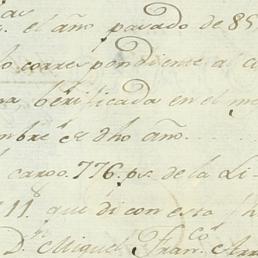 as
s. el año pasado de 85
lo correspondiente al a
na berificada en el me
mbre de dho año.
cargo. 776. ps. de la Li-
11. que di con esta
Dn. Miguel Franco. Arr